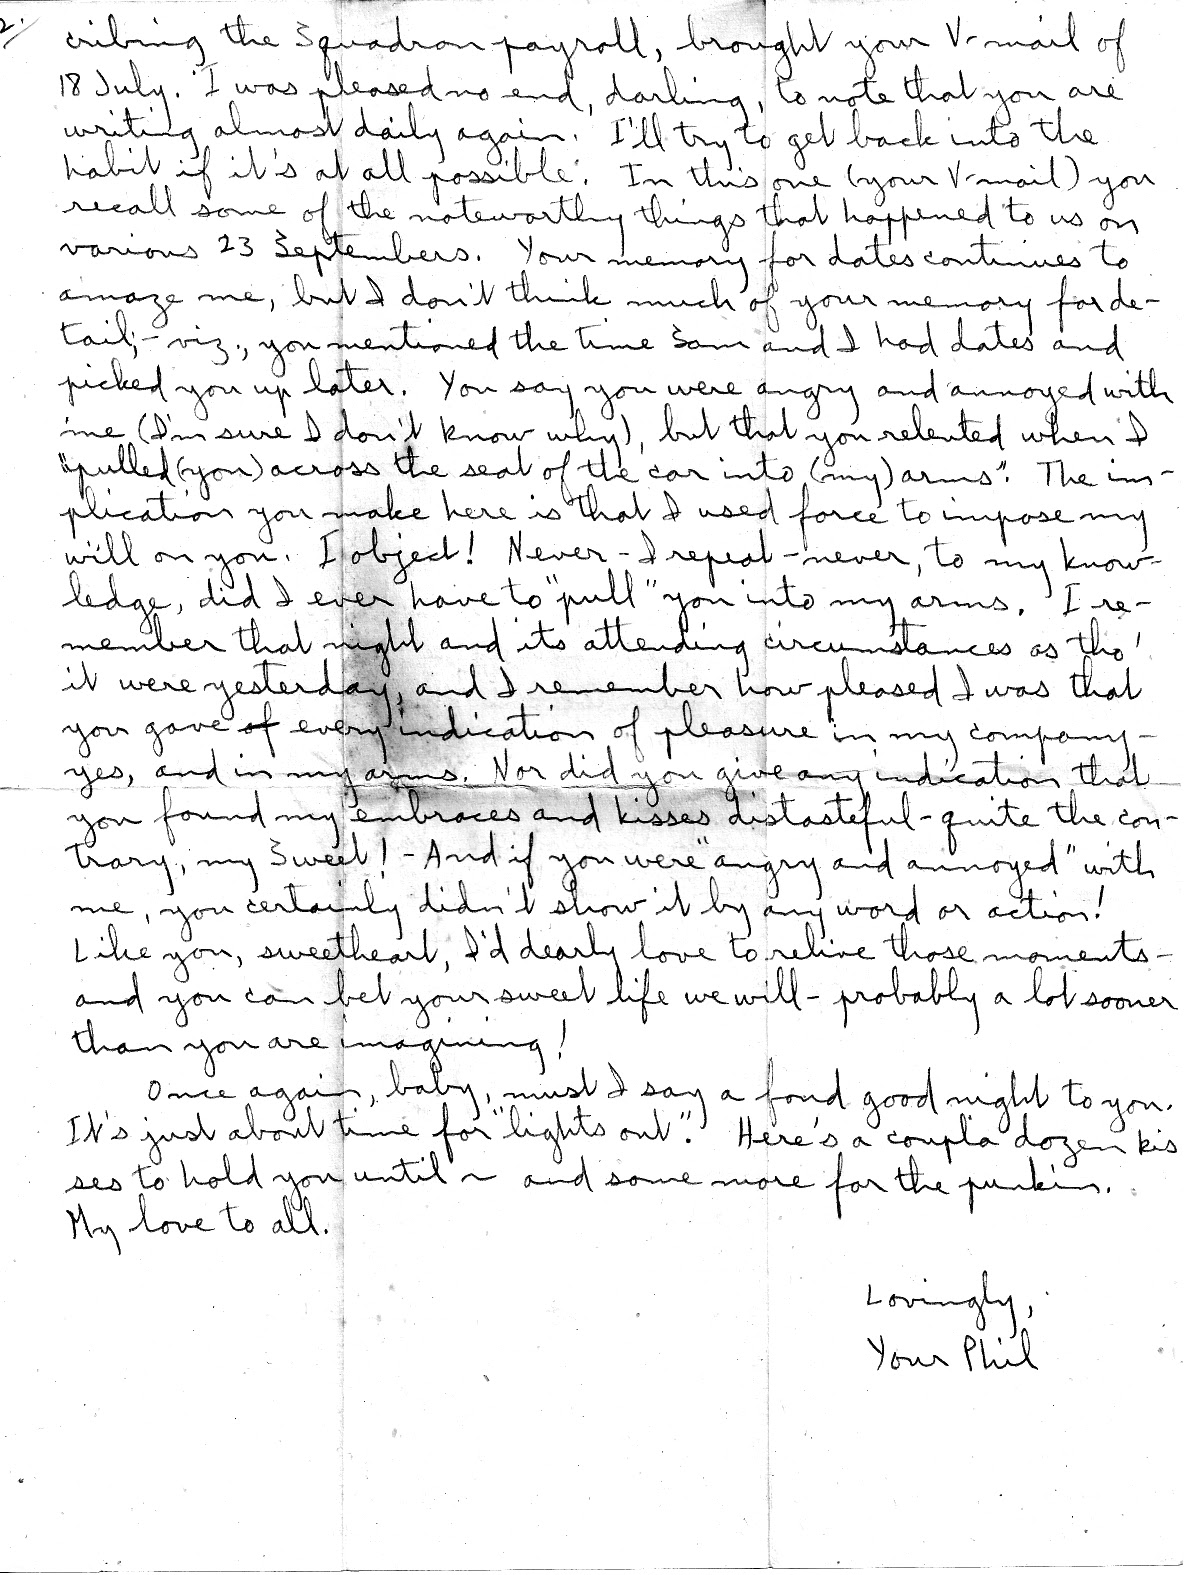 2.
cribing the Squadron payroll, brought your V-mail of
18 July. I was pleased no end, darling, to note that you are
writing almost daily again. I'll try to get back into the
habit if it's at all possible. In this one (your V-mail) you
recall some of the noteworthy things that happened to us on
various 23 Septembers. Your memory for dates continues to
amaze me, but I don't think much of your memory for de-
tail; - viz., you mentioned the time Sam and I had dates and
picked you up later. You say you were angry and annoyed with
me (I'm sure I don't know why), but that you relented when I
"pulled (you) across the seat of the car into (my) arms". The im-
plication you make here is that I used force to impose my
will on you. I object! Never - I repeat - never, to my know-
ledge, did I ever have to "pull" you into my arms. I re-
member that night and its attending circumstances as tho'
it were yesterday, and I remember how pleased I was that
you gave of every indication of pleasure in my company -
yes, and in my arms. Nor did you give any indication that
you found my embraces and kisses distasteful - quite the con-
trary, my Sweet! - And if you were "angry and annoyed" with
me, you certainly didn't show it by any word or action!
Like you, sweetheart, I'd dearly love to relive those moments -
and you can bet your sweet life we will - probably a lot sooner
than you are imagining!
Once again, baby, must I say a fond good night to you.
It's just about time for "lights out". Here's a coupla dozen kis
ses to hold you until ~ and some more for the punkin.
My love to all.
Lovingly,
Your Phil